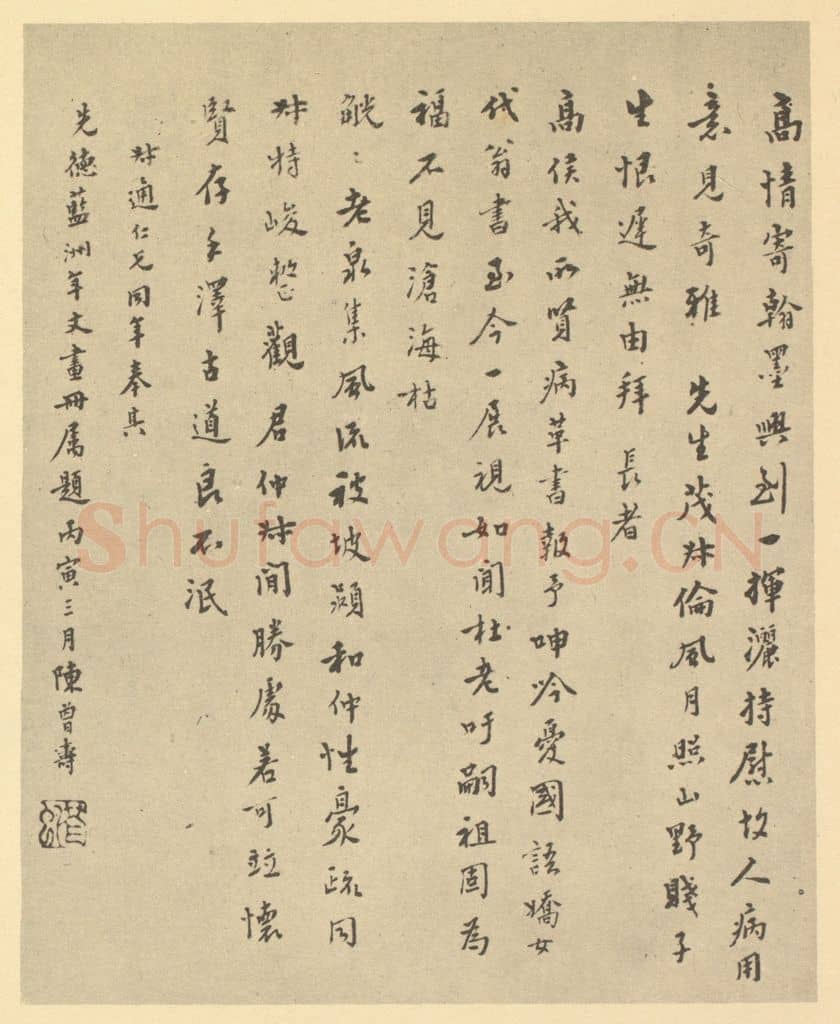 高情寄翰墨興到一揮灑持慰故人病用
意見奇雅 先生茂叔倫風月照山野賤子
生恨遲無由拜 長者
高侯我所賢病革書報予呻吟憂國語嬌女
代翁書至今一展視如聞杜老吁嗣祖固為
福不見滄海枯
觥觥老泉集風流被坡潁和仲性豪疏同
叔特峻整觀君仲叔間勝處若可並懷
賢存手澤古道良不泯
叔通仁兄同年奉其
先德藍洲年丈畫冊屬題丙寅三月陳曾壽
Shufawang.CN